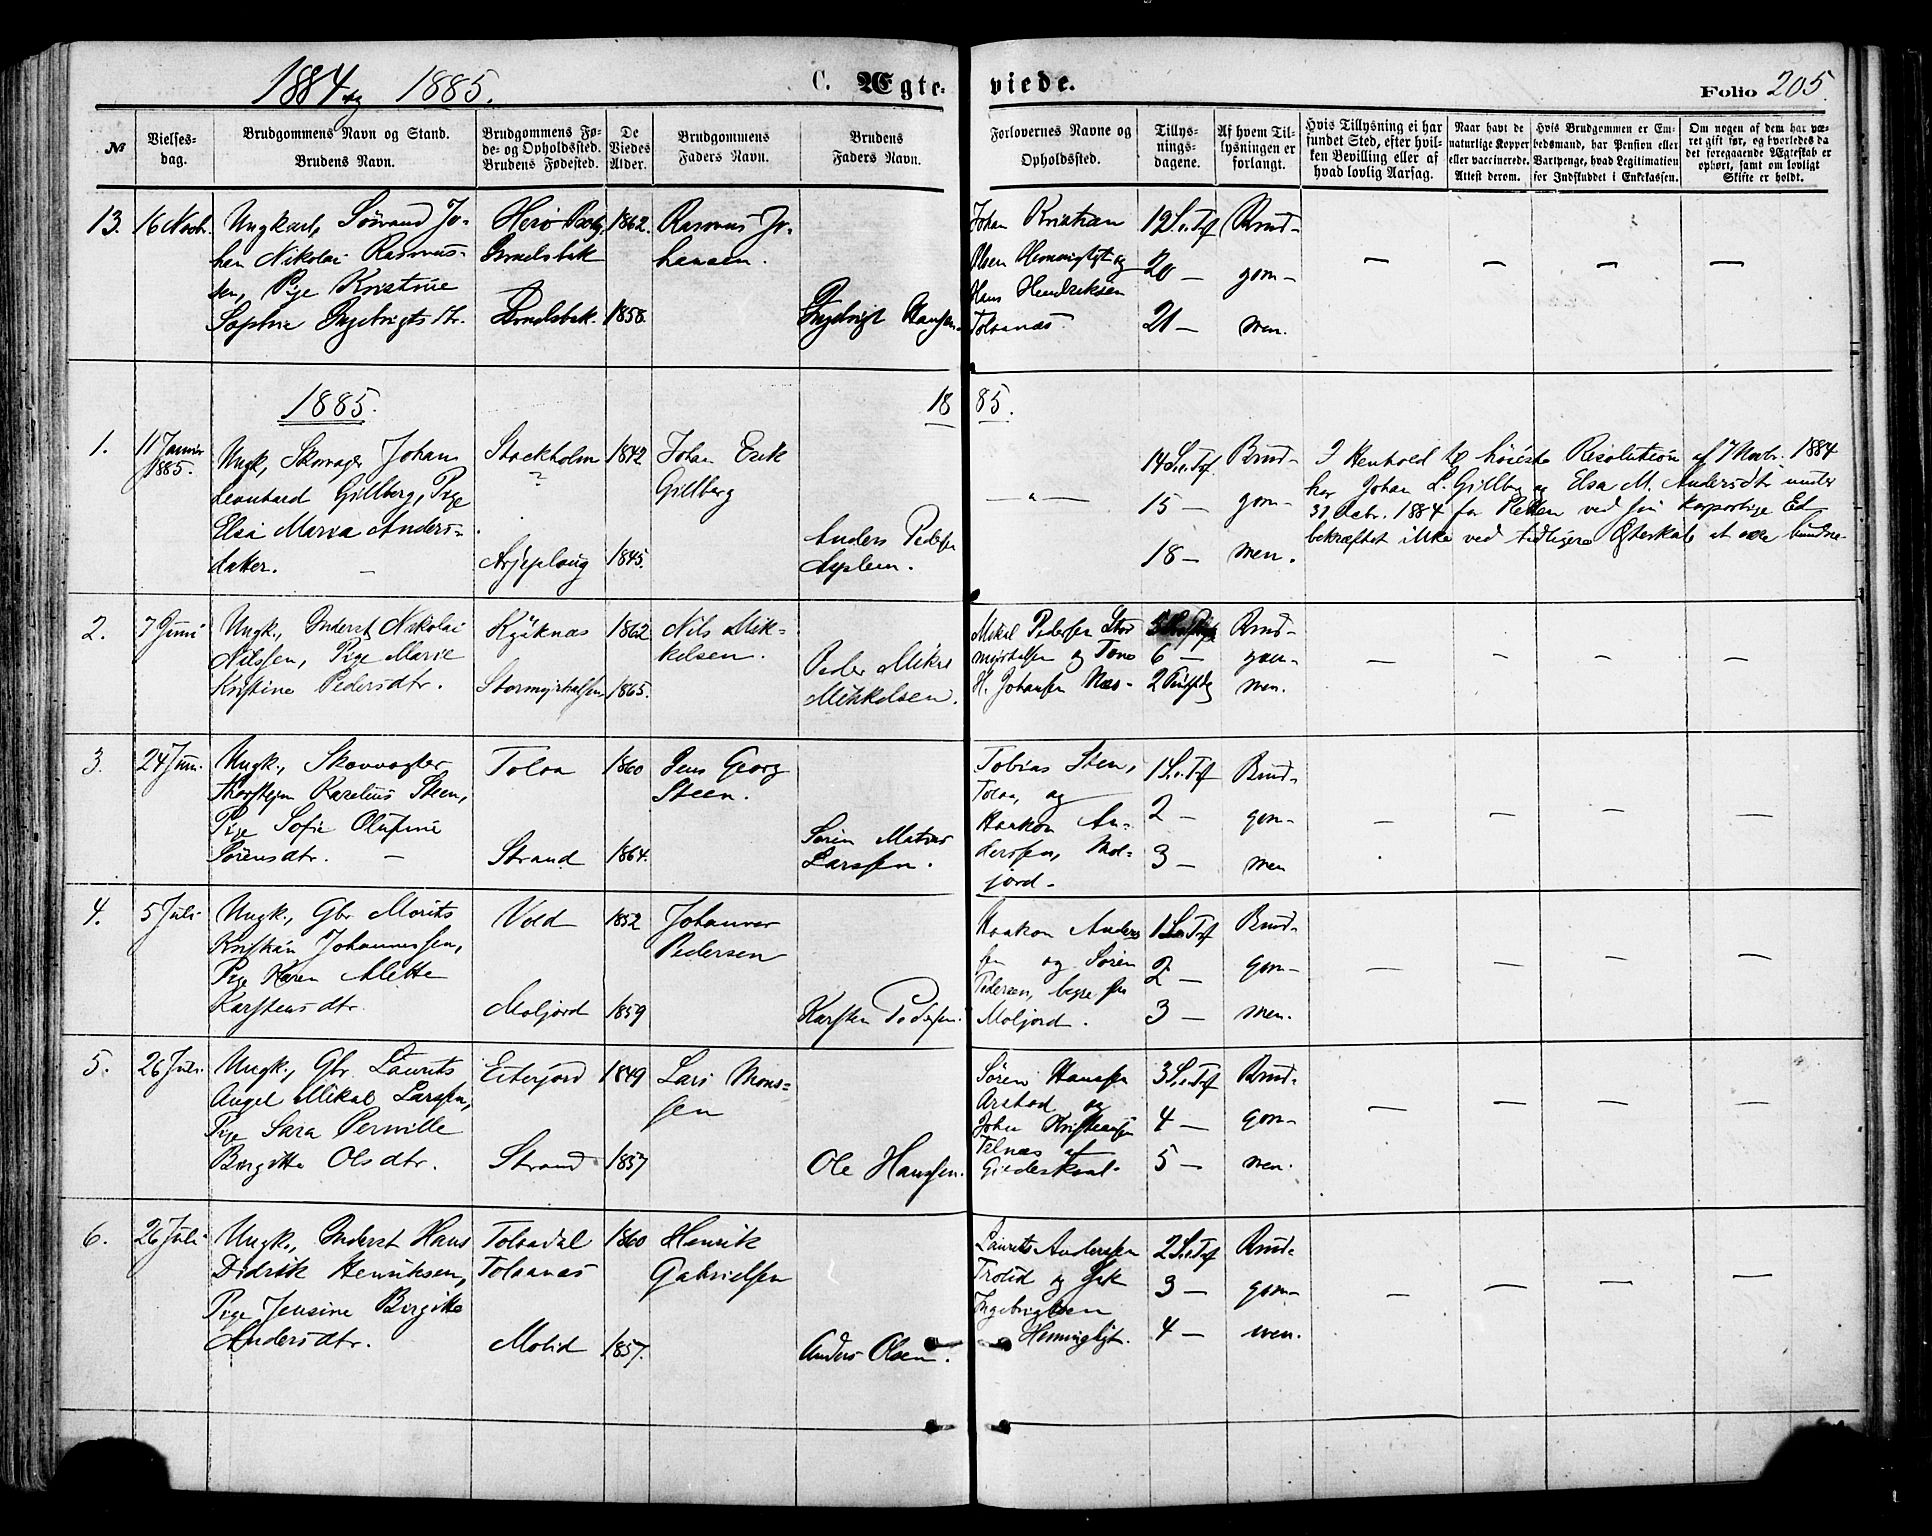 1884 og 1885.
C. Ægteviede.
Folio 205.
№
Vielses-
dag.
Brudgommens Navn og Stand.
Brudens Navn.
Brudgommens Fø-
de- og Opholdssted.
Brudens Fødested.
De
Viedes
Alder.
Brudgommens
Faders Navn.
Brudens
Faders Navn.
Forlovernes Navne og
Opholdssted.
Tillys-
nings-
dagene.
Af hvem Til-
lysningen er
forlangt.
Hvis Tillysning ei har
fundet Sted, efter hvil-
ken Bevilling eller af
hvad lovlig Aarsag.
Naar havt de
naturlige Kopper
eller vaccinerede.
Attest derom.
Hvis Brudgommen er Em-
bedsmand, har Pension eller
Vartpenge, hvad Legitimation
for Indskuddet i Enkekassen.
Om nogen af dem har væ-
ret gift før, og hvorledes da
det foregaaende Ægteskab er
ophørt, samt om lovligt
Skifte er holdt.
13.
16 Novbr.
Ungkarl, Sørand Jo-
han Nikolai Rasmus-
sen, Pige Kristine
Sophie Ingebrigtsdtr.
Herø
1862.
1858.
Rasmus Jo-
hansen.
Ingebrigt Hansen
Johan Kristian
Olsen Hemmingligt og
Hans Hendriksen
Tolaanæs
12 S. e. Tf
20 —
21 —
Brud-
gom-
men.
1885.
1885.
1.
11 Januar
1885.
Ungk., Skovvager Johan
Leonhard Gillberg, Pige
Elsa Maria Anders-
datter. —
Stockholm
?
Arjeploug
1842
1845.
Johan Erik
Gillberg
Anders Peders
— " —
14 S. e. Tf.
15 —
18 —
Brud-
gom-
men.
I Henhold til høieste Resolution af 7 Novbr. 1884
har Johan L. Gillberg og Elsa M. Andersdtr under
31 Decbr. 1884 for Retten ved sin korporlige Ed
bekræftet ikke ved tidligere Ægteskab at være bundne.
2.
7 Juni
Ungk., Inderst Nikolai
Nilssen, Pige Marie
Kristine Pedersdtr.
Kjøknæs
Stormyrhalsen
1862
1865.
Nils Mik-
kelsen.
Peder Mikal
Mikkelsen.
Mikal Pedersen Stor
myrhalsen og Tøno
H. Johansen Næs-
6 —
2 Pintsdg
Brud-
gom-
men.
3.
24 Juni.
Ungk., Skovvogter
Thorstein Karelius Steen,
Pige Sofie Olufine
Sørensdtr. —
Tolaa
Strand
1860
1864.
Jens Georg
Steen.
Søren Mathias
Larssen.
Tobias Sten,
Tolaa, og
Haakon An-
derssen, Mol-
jord.
1 S. e. Tf
2 —
3 —
Brud-
gom-
men
4.
5 Juli
Ungk., Gbr Morits
Kristian Johannessen,
Pige Karen Alette
Karstensdtr.
Vold
Moljord
1852
1859
Johannes
Pedersen
Karsten Pedersen.
Haakon Anders
sen og Søren
Pedersen, begge fra
Moljord.
1 S. e. Tf
2 —
3 —
Brud-
gom-
men.
5.
26 Juli.
Ungk., Gbr. Laurits
Angel Mikal Larssen,
Pige Sara Pernille
Birgitte Olsdtr.
Eiterjord
Strand
1849
1857
Lars Mons-
sen
Ole Hanssen.
Søren Hanssen
Arstad og
Johan Kristiansen
Telnæs af
Gildeskaal.
3 S. e. Tf
4 —
5 —
Brud-
gom-
men.
6.
26 Juli
Ungk., Inderst Hans
Didrik Henriksen,
Pige Jensine Birgitte
Andersdtr.
Tolaadal
Tolaanæs
Molid
1860
1857.
Henrik
Gabrielsen
Anders Olsen.
Laurits Andersen
Trolid og Isak
Ingebrigtsen
Hemmingligt.
2 S. e. Tf
3 —
4 —
Brud-
gom-
men.